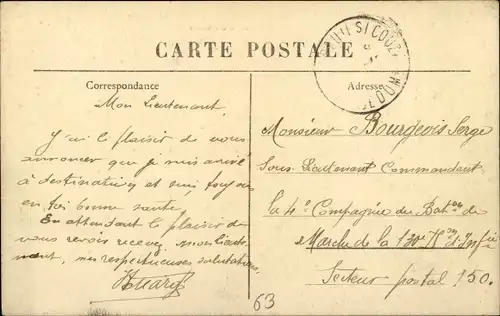 CARTE POSTALE
Correspondance
Adresse
Mon Lieutenant,
J'ai le plaisir de vous
annoncer que je suis arrivé
à destination et suis toujours
en bonne santé.
En attendant le plaisir de
vous revoir recevez mon lieute-
nant, mes respectueuses salutations,
Monsieur Bourgeois Serge
Sous-Lieutenant Commandant
la 4e Compagnie du Baton de
Marche de la 130e
Secteur postal 150.
63